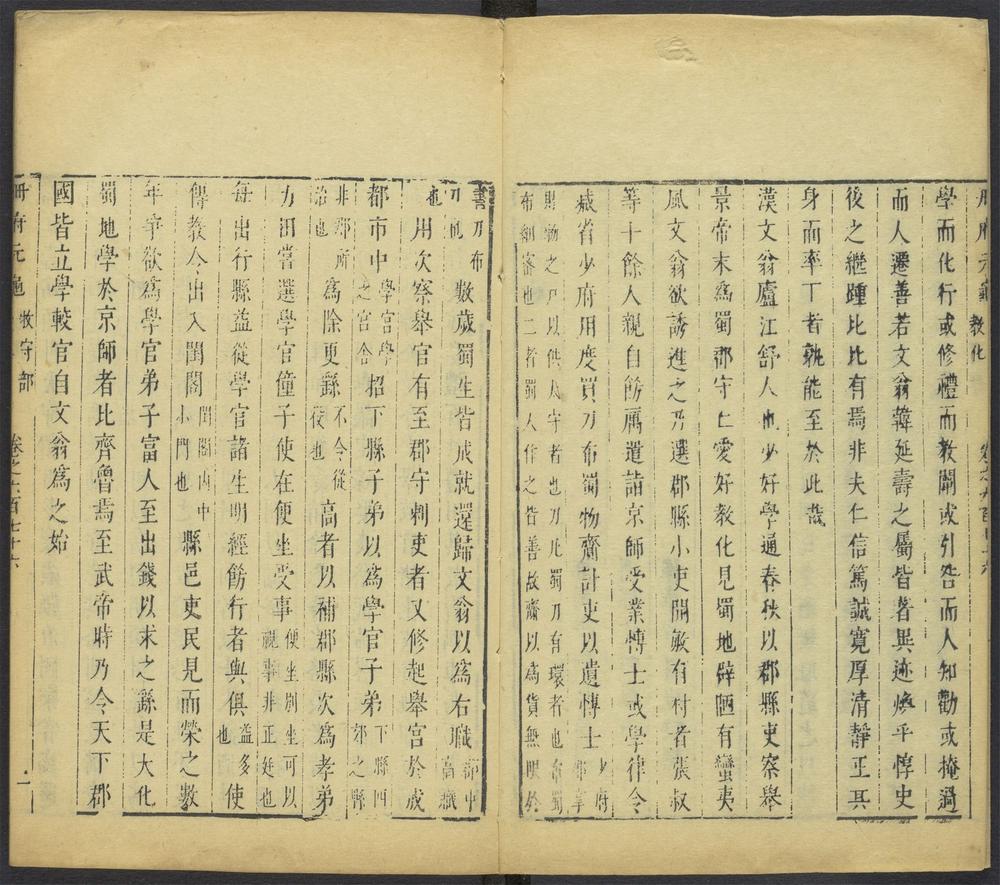 冊府元龜 教化 卷之六百七十六
學而化行或修禮而教闡或引咎而人知勸或掩過
而人遷善若文翁韓延壽之屬皆著異迹煥乎惇史
後之繼踵比比有焉非夫仁信篤誠寬厚清靜正其
身而率下者孰能至於此哉
漢文翁廬江舒人也少好學通春秋以郡縣吏察舉
景帝末為蜀郡守仁愛好教化見蜀地辟陋有蠻夷
風文翁欲誘進之乃選郡縣小吏開敏有材者張叔
等十餘人親自飭厲遣詣京師受業愽士或學律令
減省少府用度買刀布蜀物齎計吏以遺愽士少府郡掌
財物之府以供太守者也刀凡蜀刀有環者也布蜀
布細密也二者蜀人作之皆善故齎以為貨無限於
書刀布刀也數歲蜀生皆成就還歸文翁以為右職郡中高職
也用次察舉官有至郡守刺史者又修起舉官於成
都市中學官學之官舍招下縣子弟以為學官子弟下縣四郊之縣
非郡所治也為除更繇不令從役也高者以補郡縣次為孝弟
力田嘗選學官僮子使在便坐受事便坐別坐可以視事非正廷也
每出行縣益從學官諸生明經飭行者與俱益多也使
傳教令出入閨閤閨閤內中小門也縣邑吏民見而榮之數
年爭欲為學官弟子富人至出錢以求之繇是大化
蜀地學於京師者比齊魯焉至武帝時乃令天下郡
國皆立學較官自文翁為之始
冊府元龜 牧守部 卷之六百七十六 二